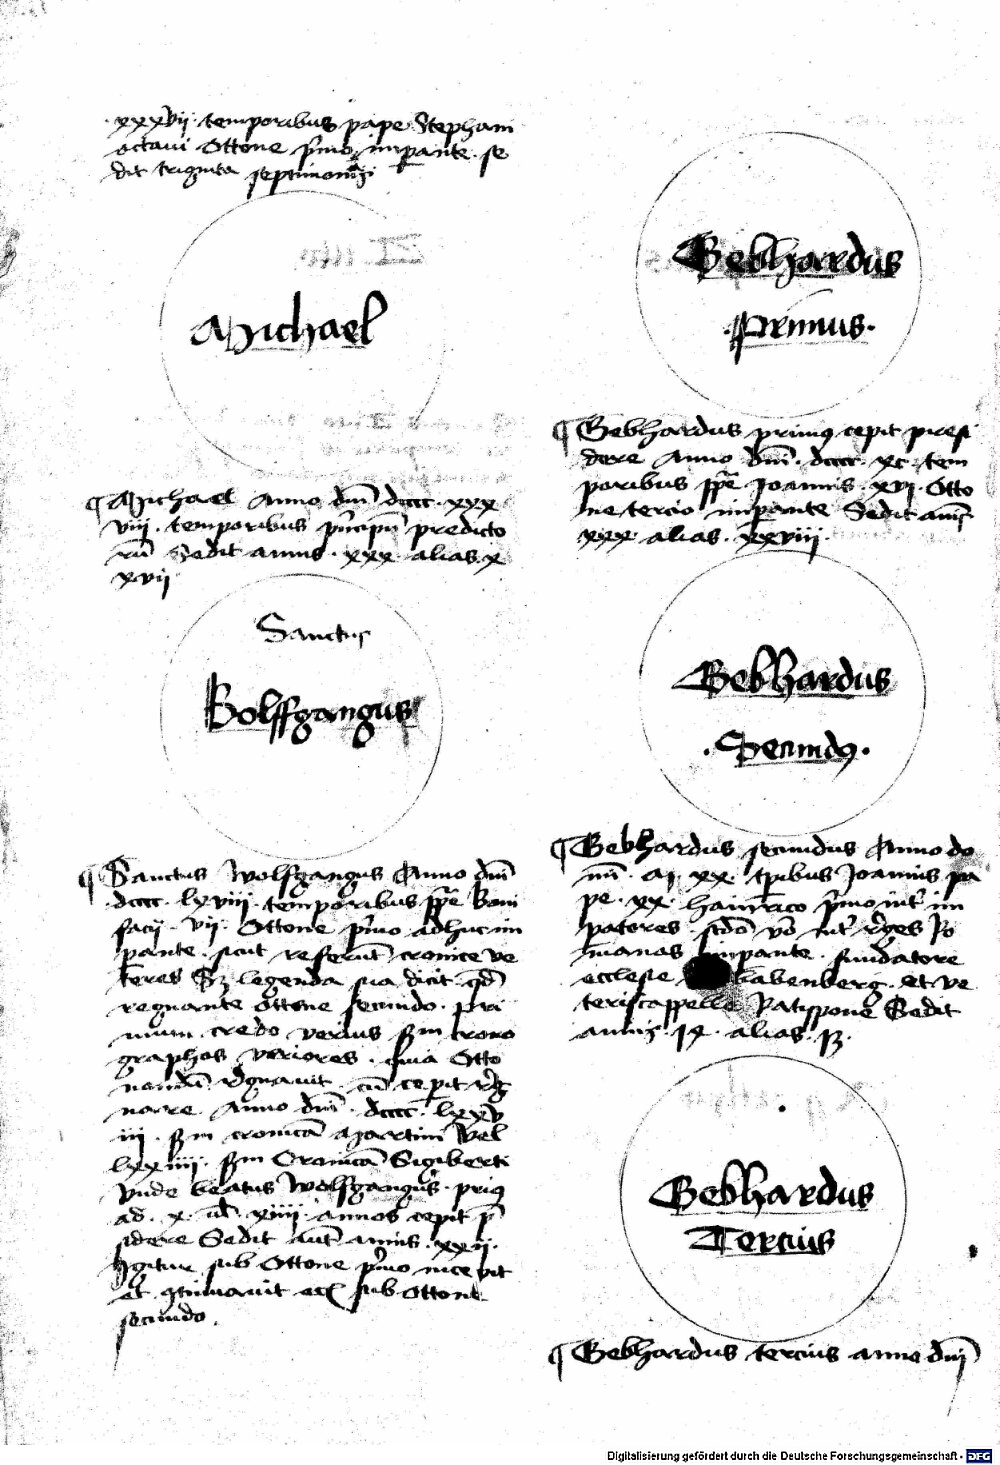 xxxvii. temporibus pape Stephani
octaui Ottone p̄mo. imꝑante. se
dit triginta septimo
Michael
¶ Michael Anno dnī dcccc. xxx
viii. temporibus pͥncipū predicto
rū Sedit annis. xxx. alias. x
xvij
Sanctus
Wolffgangus
¶ Sanctus Wolfgangus Anno dnī
.dcccc. lxviii. temporibus ppe Boni
facij. vij. Ottone pͥmo adhuc im
ꝑante. sicut referūt cronice ve
teres Sꝫ legenda sua dicit qd̄
regnante ottone secundo. Pri
mum credo verius scdm crono
graphos veriores. quia Otto
nondū regnauit cū cepit reg
nare Anno dnī. dcccc. lxxv
iii. scdm cronicā Martini Vel
lxxiiii. scdm Cronicā Sigiberti
Vnde beatus Wolfgangus. prius
ad. x. ul̄. xiiii. annos cepit p̄
sidere Sedit aut̄ annis. xxii.
Igitur sub Ottone pͥmo incepit
et ꝯtinuauit sub Ottone
secundo.
Gebhardus
.Primus.
¶ Gebhardus primꝰ cepit presi
dere Anno dnī. dcccc. xc. tem
poribus ppe Joannis. xvi. Otto
ne tercio imꝑante Sedit annis
xxx alias. xxviii.
Gebhardus
.Secundꝰ.
¶ Gebhardus secundus Anno do
mi. M. xx. tꝑibus Joannis pa
pe. xx. hainrico pͥmo int̄ im
patores. scdo vo int̄ reges Ro
manos imꝑante. fundatore
ecclesie babenberg. et ve
teriscappelle Ratispone Sedit
annis. 14. alias. 13.
Gebhardus
Tercius
¶ Gebhardus tercius anno dnī
Digitalisierung gefördert durch die Deutsche Forschungsgemeinschaft - DFG